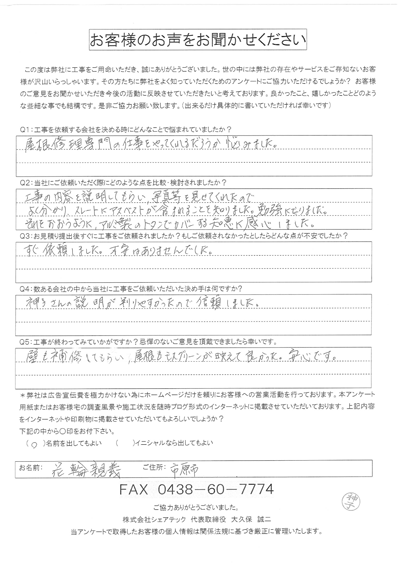 お客様のお声をお聞かせください
この度は弊社に工事をご用命いただき、誠にありがとうございました。世の中には弊社の存在やサービスをご存知ないお客
様が沢山いらっしゃいます。その方たちに弊社をよく知っていただくためのアンケートにご協力いただけるでしょうか? お客様
のご意見をお聞かせいただき今後の活動に反映させていただきたいと考えております。良かったこと、嬉しかったことどのよう
な些細な事でも結構です。是非ご協力お願い致します。(出来るだけ具体的に書いていただければ幸いです)
Q1:工事を依頼する会社を決める時にどんなことで悩まれていましたか?
屋根修理専門の仕事をやってくれるだろうか悩みました。
Q2:当社にご依頼いただく際にどのような点を比較・検討されましたか?
工事の内容を説明してもらい、写真等を見せてくれたので
よく分かり、スレートにアスベストが含まれることを知りました。勉強になりました。
それをおおうように、アルミ製のトタンでカバーする知恵に感心しました。
Q3:お見積り提出後すぐに工事をご依頼されましたか?もしご依頼されなかったとしたらどんな点が不安でしたか?
すぐ依頼しました。不安はありませんでした。
Q4:数ある会社の中から当社に工事をご依頼いただいた決め手は何ですか?
神子さんの説明が判りやすかったので信頼しました。
Q5:工事が終わってみていかがですか?忌憚のないご意見を頂戴できましたら幸いです。
壁も補修してもらい、屋根もモスグリーンが映えて良かった。安心です。
*弊社は広告宣伝費を極力かけない為にホームページだけを頼りにお客様への営業活動を行っております。本アンケート
用紙またはお客様宅の調査風景や施工状況を随時ブログ形式のインターネットに掲載させていただいております。上記内容
をインターネットや印刷物に掲載させていただいてもよろしいでしょうか?
下記の中から〇印をお付下さい。
(○)名前を出してもよい ( )イニシャルなら出してもよい
お名前: 花輪親義 ご住所: 市原市
FAX 0438-60-7774
神子
ご協力ありがとうございました。
株式会社シェアテック 代表取締役 大久保 誠二
当アンケートで取得したお客様の個人情報は関係法規に基づき厳正に管理いたします。